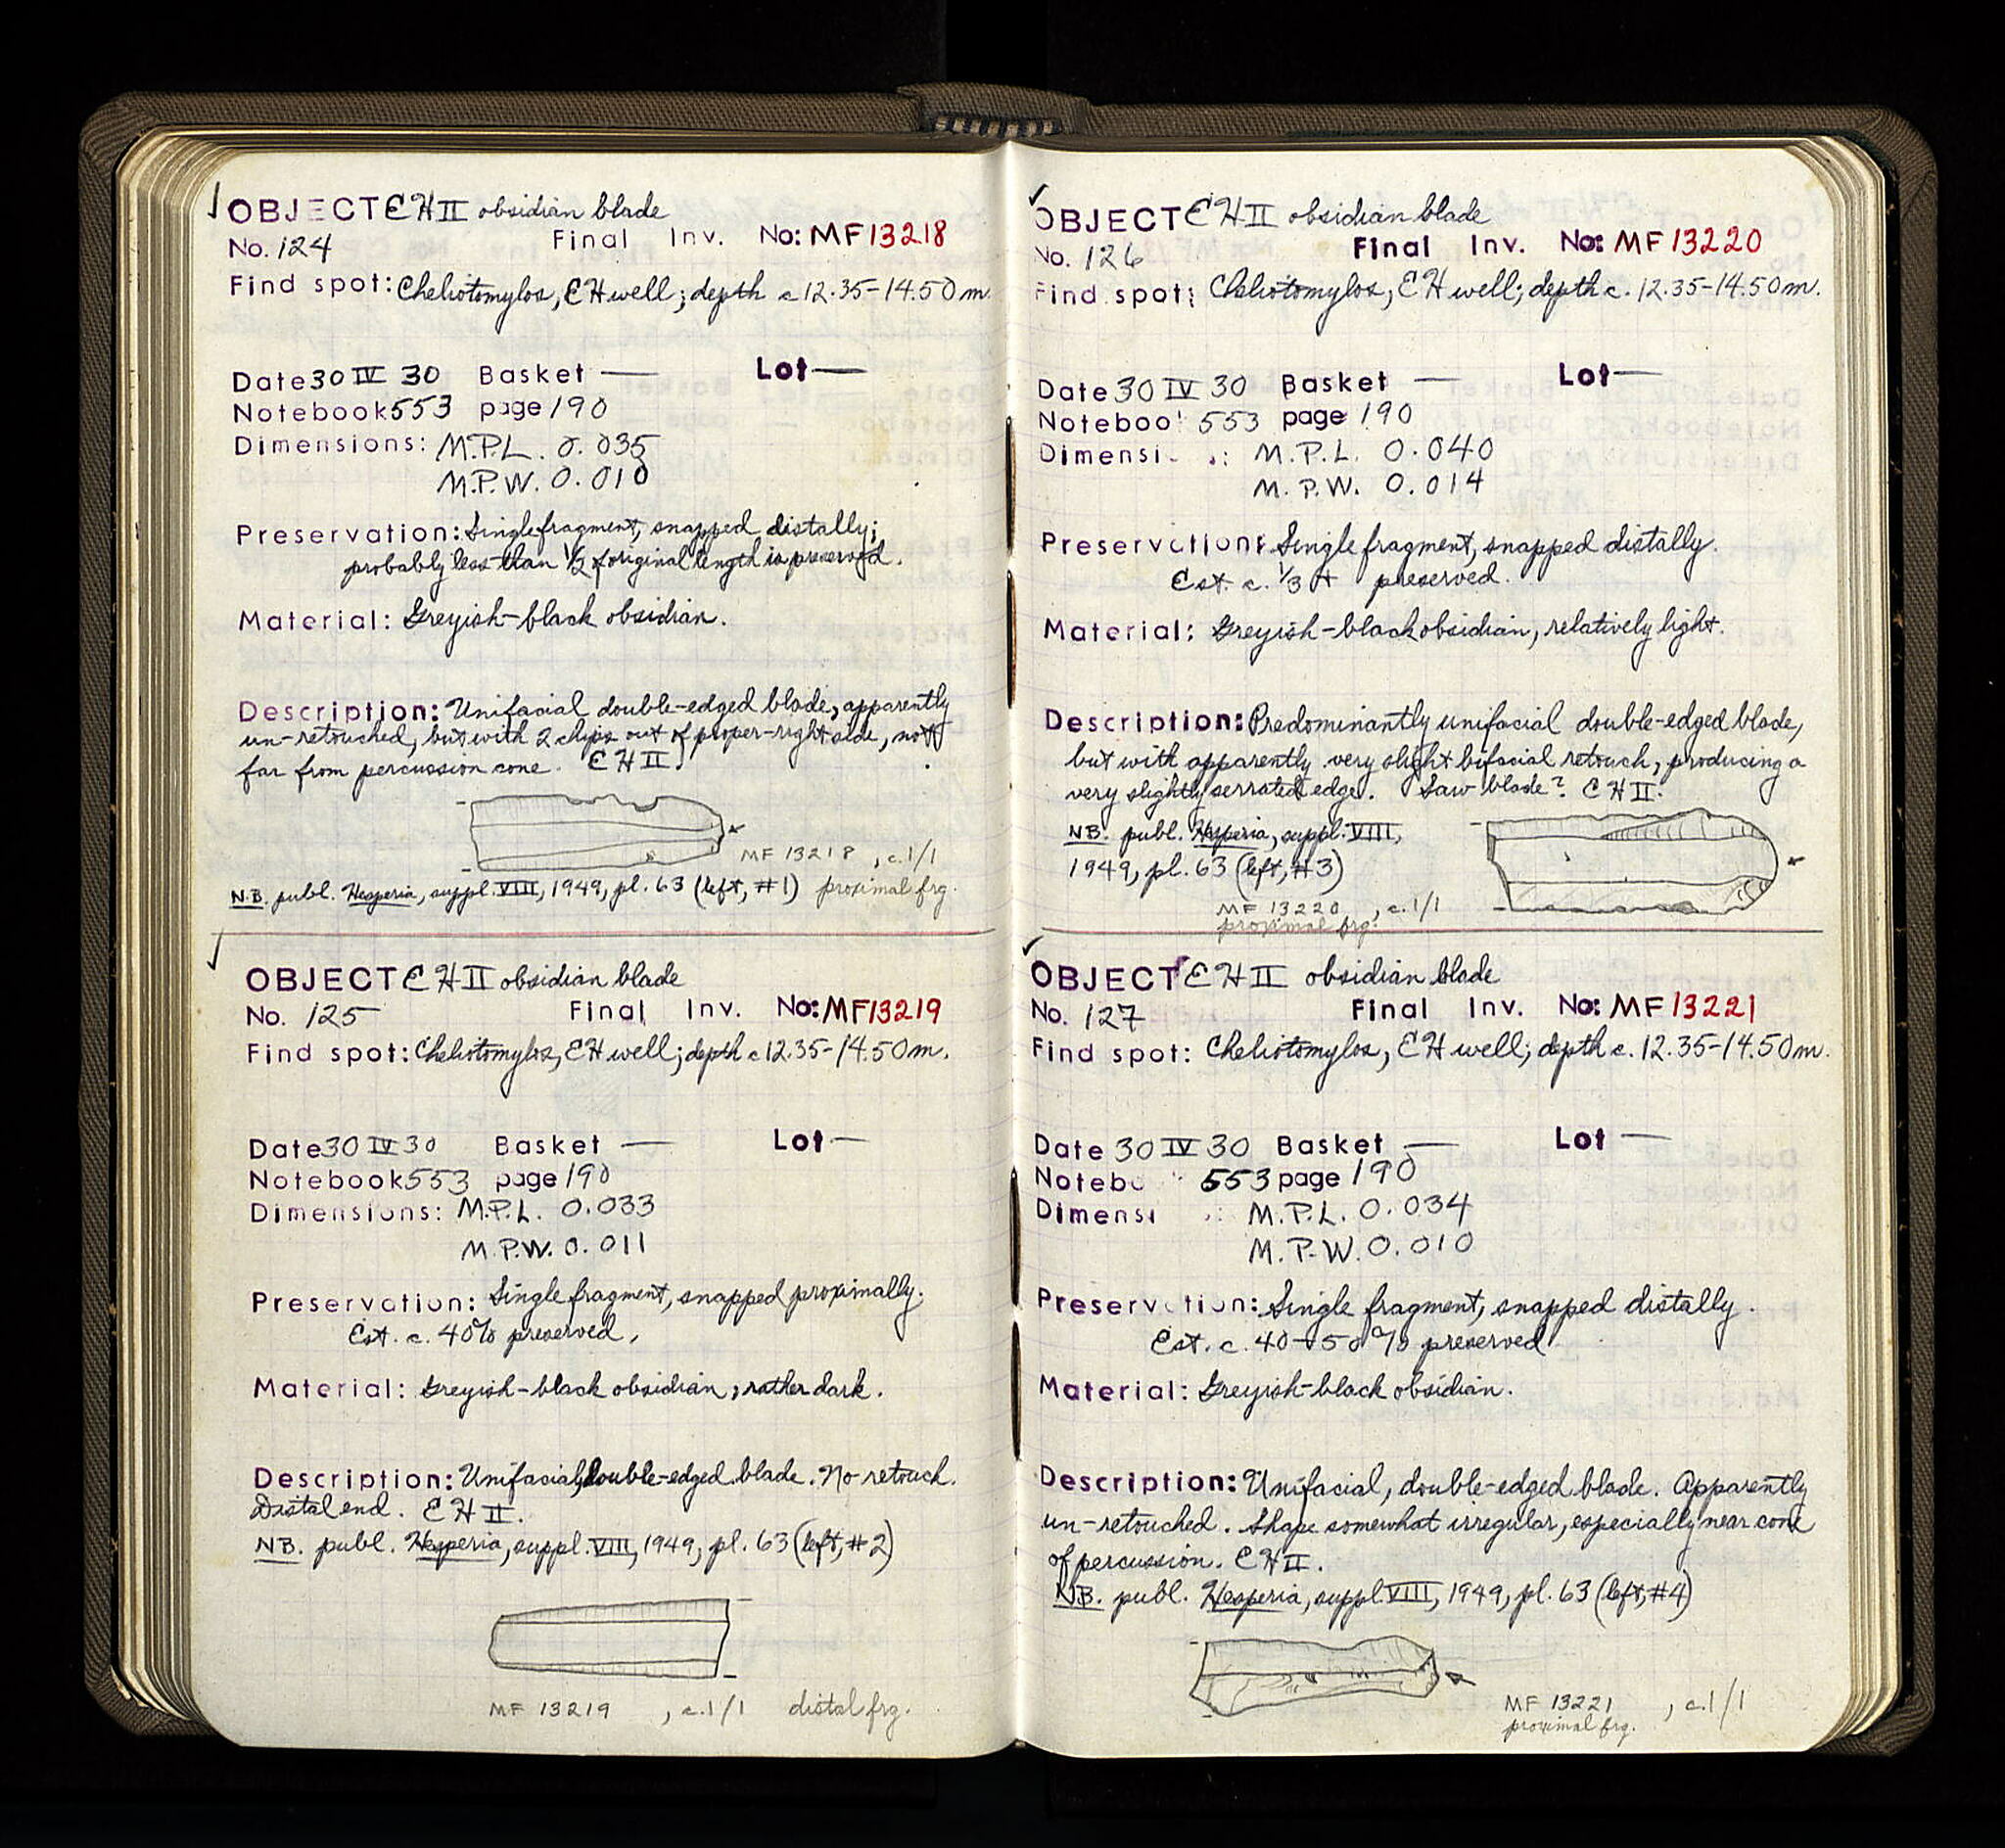 OBJECT EH II obsidian blade
No. 124 Final Inv. No: MF13218
Find spot: Cheliotomylos, EH well; depth c 12.35-14.50 m.
Date 30 IV 30 Basket — Lot —
Notebook 553 page 190
Dimensions: M.P.L. 0.035
M.P.W. 0.010
Preservation: Single fragment, snapped distally;
probably less than 1/2 of original length is preserved.
Material: Greyish-black obsidian.
Description: Unifacial double-edged blade, apparently
un-retouched, but with 2 chips out of proper-right side, not
far from percussion cone. EH II.
MF 13218, c. 1/1
N.B. publ. Hesperia, suppl. VIII, 1949, pl. 63 (left, #1) proximal frg.
OBJECT EH II obsidian blade
No. 125 Final Inv. No: MF13219
Find spot: Cheliotomylos, EH well; depth c 12.35-14.50 m.
Date 30 IV 30 Basket — Lot —
Notebook 553 page 190
Dimensions: M.P.L. 0.033
M.P.W. 0.011
Preservation: Single fragment, snapped proximally.
Est. c. 40% preserved.
Material: Greyish-black obsidian, rather dark.
Description: Unifacial, double-edged blade. No retouch.
Distal end. EH II.
NB. publ. Hesperia, suppl. VIII, 1949, pl. 63 (left, #2)
MF 13219, c. 1/1 distal frg.
OBJECT EH II obsidian blade
No. 126 Final Inv. No: MF 13220
Find spot: Cheliotomylos, EH well; depth c. 12.35-14.50 m.
Date 30 IV 30 Basket — Lot —
Noteboo 553 page 190
Dimensi : M.P.L. 0.040
M.P.W. 0.014
Preservation: Single fragment, snapped distally.
Est. c. 1/3 + preserved.
Material: Greyish-black obsidian, relatively light.
Description: Predominantly unifacial double-edged blade,
but with apparently very slight bifacial retouch, producing a
very slightly serrated edge. Saw blade? EH II.
NB. publ. Hesperia, suppl. VIII,
1949, pl. 63 (left, #3)
MF 13220, c. 1/1
proximal frg.
OBJECT EH II obsidian blade
No. 127 Final Inv. No: MF 13221
Find spot: Cheliotomylos, EH well; depth c. 12.35-14.50 m.
Date 30 IV 30 Basket — Lot —
Notebo 553 page 190
Dimensi : M.P.L. 0.034
M.P.W. 0.010
Preservation: Single fragment, snapped distally.
Est. c. 40-50% preserved
Material: Greyish-black obsidian.
Description: Unifacial, double-edged blade. Apparently
un-retouched. Shape somewhat irregular, especially near cone
of percussion. EH II.
N.B. publ. Hesperia, suppl. VIII, 1949, pl. 63 (left, #4)
MF 13221, c. 1/1
proximal frg.